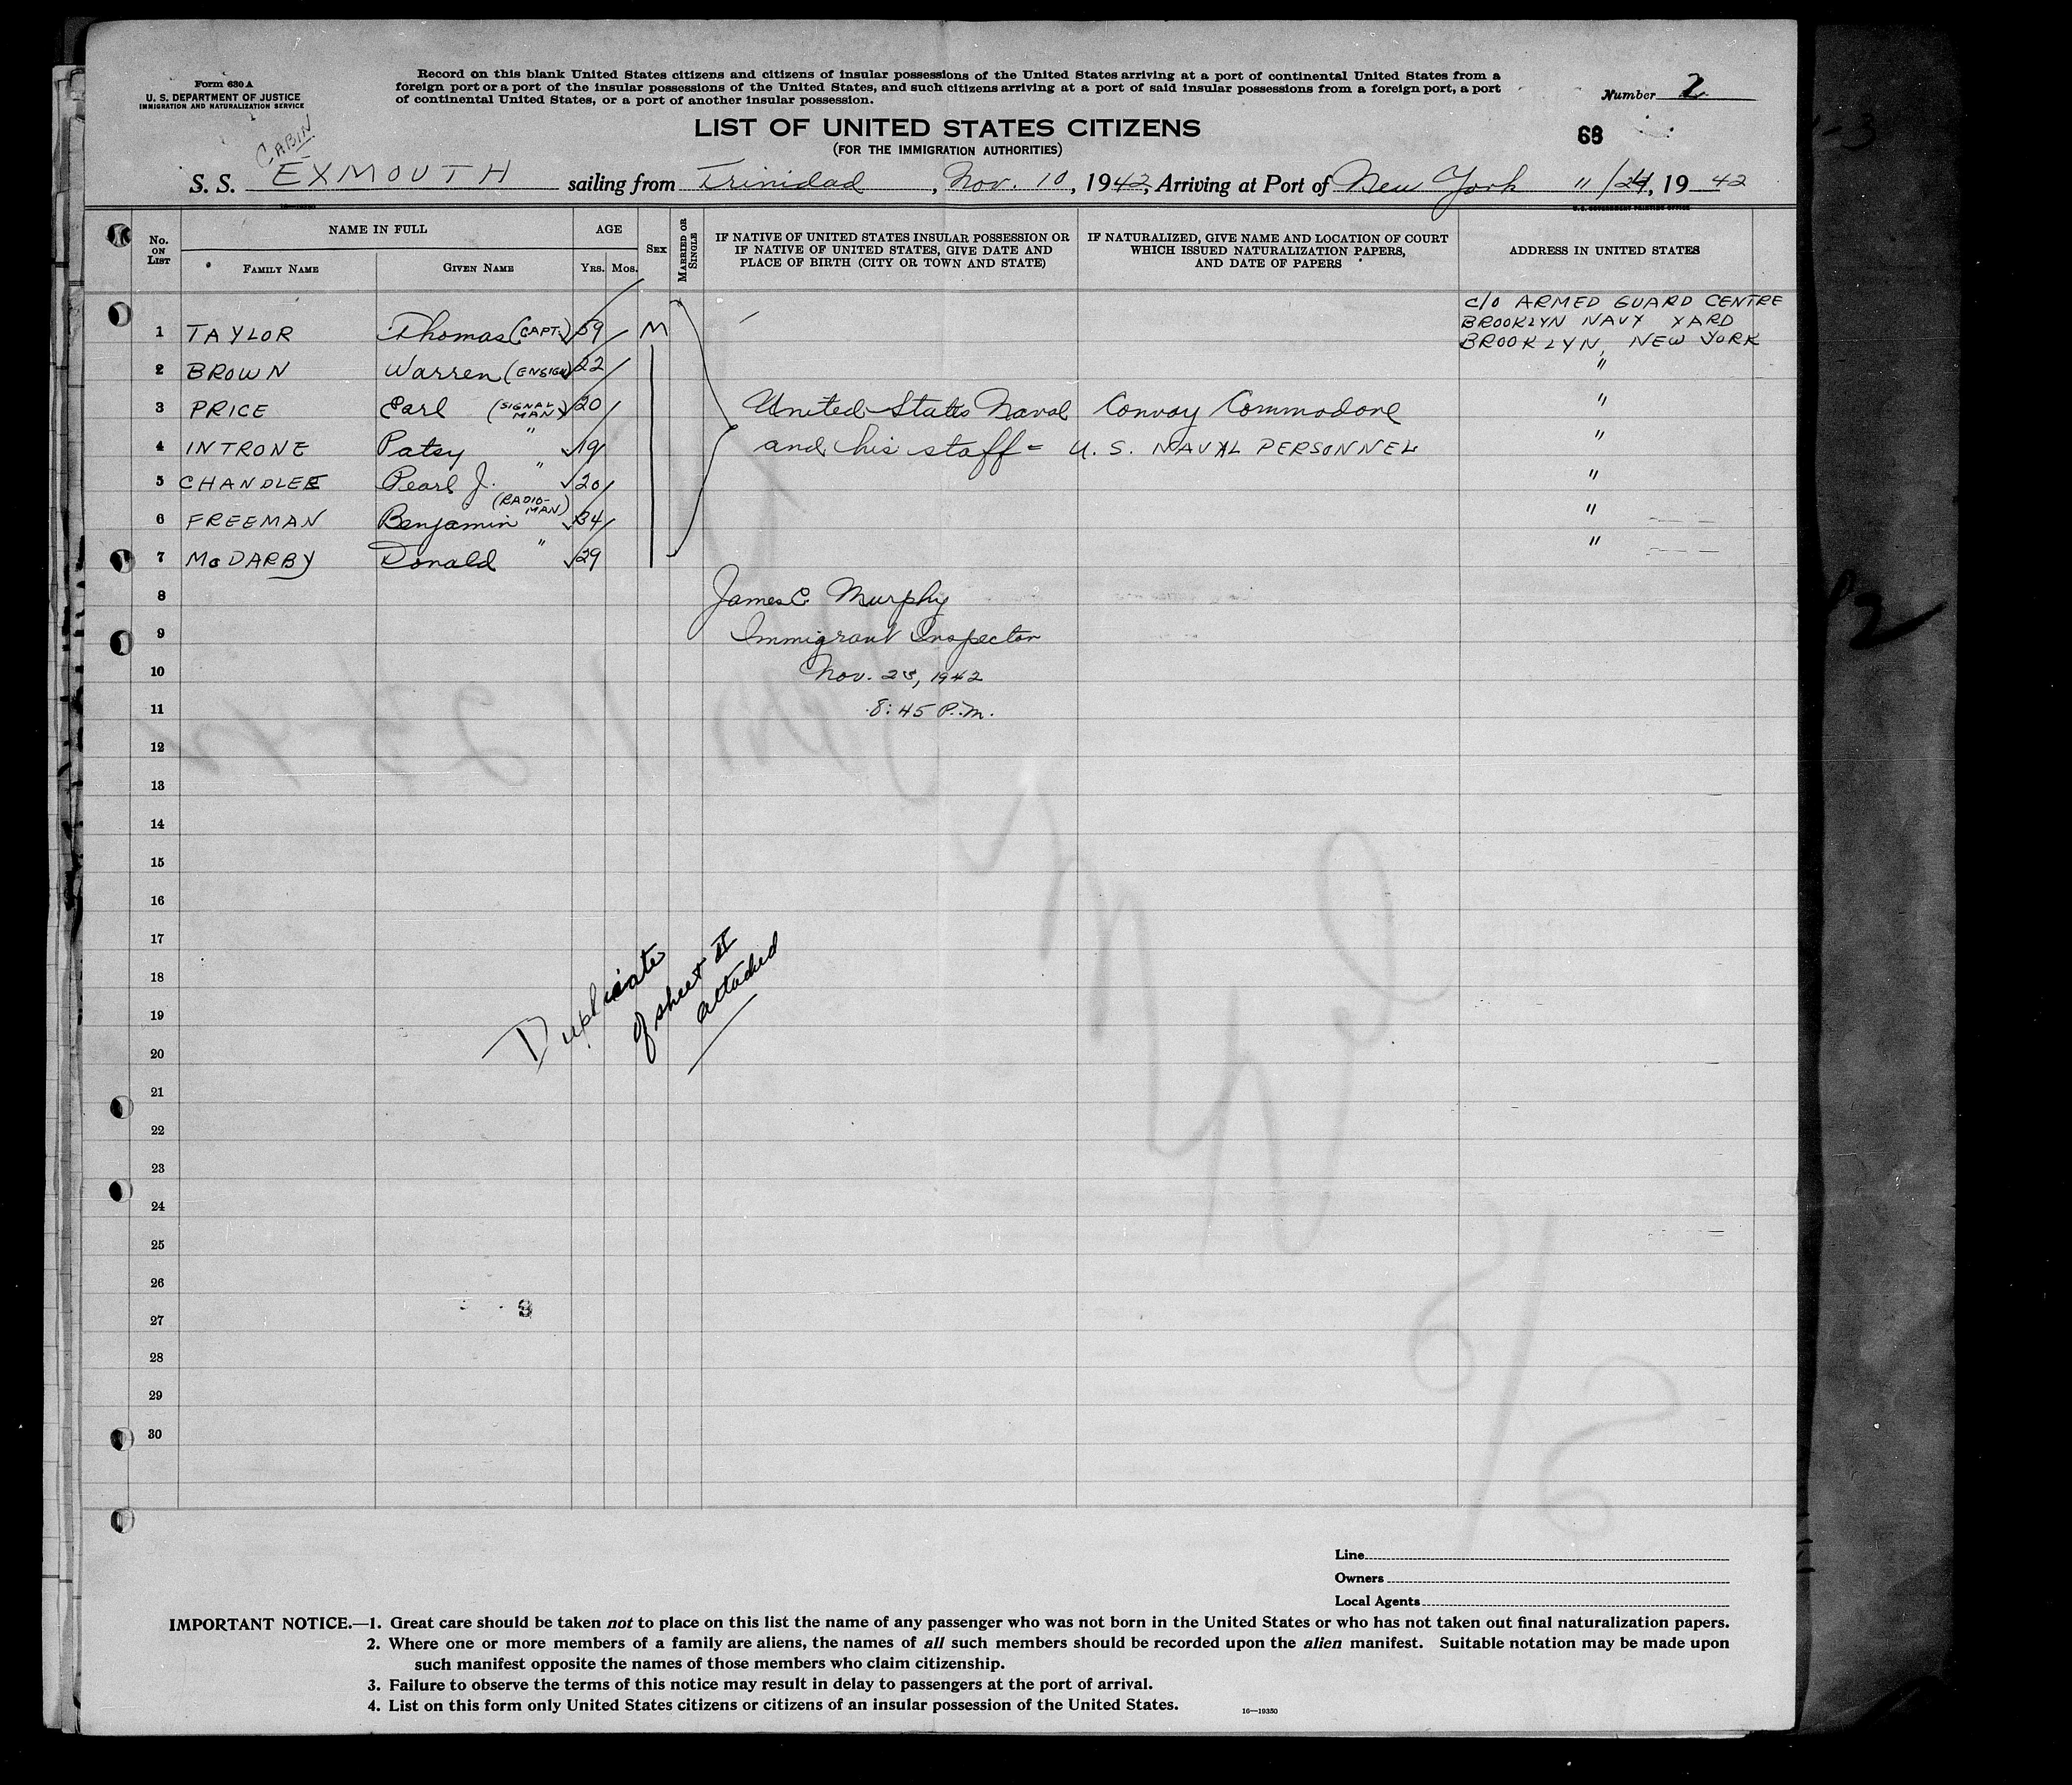 Form 630 A
U. S. DEPARTMENT OF JUSTICE
IMMIGRATION AND NATURALIZATION SERVICE
Record on this blank United States citizens and citizens of insular possessions of the United States arriving at a port of continental United States from a
foreign port or a port of the insular possessions of the United States, and such citizens arriving at a port of said insular possessions from a foreign port, a port
of continental United States, or a port of another insular possession.
Number 2
LIST OF UNITED STATES CITIZENS
(FOR THE IMMIGRATION AUTHORITIES)
68
CABIN
S. S. EXMOUTH sailing from Trinidad, Nov. 10, 1942, Arriving at Port of New York 11/24, 1942
U.S. GOVERNMENT PRINTING OFFICE
No. ON LIST
NAME IN FULL
FAMILY NAME
GIVEN NAME
AGE
YRS. MOS.
SEX
MARRIED OR SINGLE
IF NATIVE OF UNITED STATES INSULAR POSSESSION OR
IF NATIVE OF UNITED STATES, GIVE DATE AND
PLACE OF BIRTH (CITY OR TOWN AND STATE)
IF NATURALIZED, GIVE NAME AND LOCATION OF COURT
WHICH ISSUED NATURALIZATION PAPERS,
AND DATE OF PAPERS
ADDRESS IN UNITED STATES
c/o ARMED GUARD CENTRE
BROOKLYN NAVY YARD
BROOKLYN, NEW YORK
1 TAYLOR Thomas (CAPT.) 59 M
2 BROWN Warren (ENSIGN) 22 "
3 PRICE Earl (SIGNAL MAN) 20 United States Naval Convoy Commodore "
4 INTRONE Patsy " 19 and his staff = U. S. NAVAL PERSONNEL "
5 CHANDLEE Pearl J. " 20 "
6 FREEMAN Benjamin (RADIO-MAN) 34 "
7 McDARBY Donald " 29 "
8 James C. Murphy
9 Immigrant Inspector
10 Nov. 25, 1942
11 8:45 P.M.
12
13
14
15
16
17
18
19
20
21
22
23
24
25
26
27
28
29
30
Duplicate
of sheet II
attached
3
Line
Owners
Local Agents
IMPORTANT NOTICE.—1. Great care should be taken not to place on this list the name of any passenger who was not born in the United States or who has not taken out final naturalization papers.
2. Where one or more members of a family are aliens, the names of all such members should be recorded upon the alien manifest. Suitable notation may be made upon
such manifest opposite the names of those members who claim citizenship.
3. Failure to observe the terms of this notice may result in delay to passengers at the port of arrival.
4. List on this form only United States citizens or citizens of an insular possession of the United States.
16—19350
2